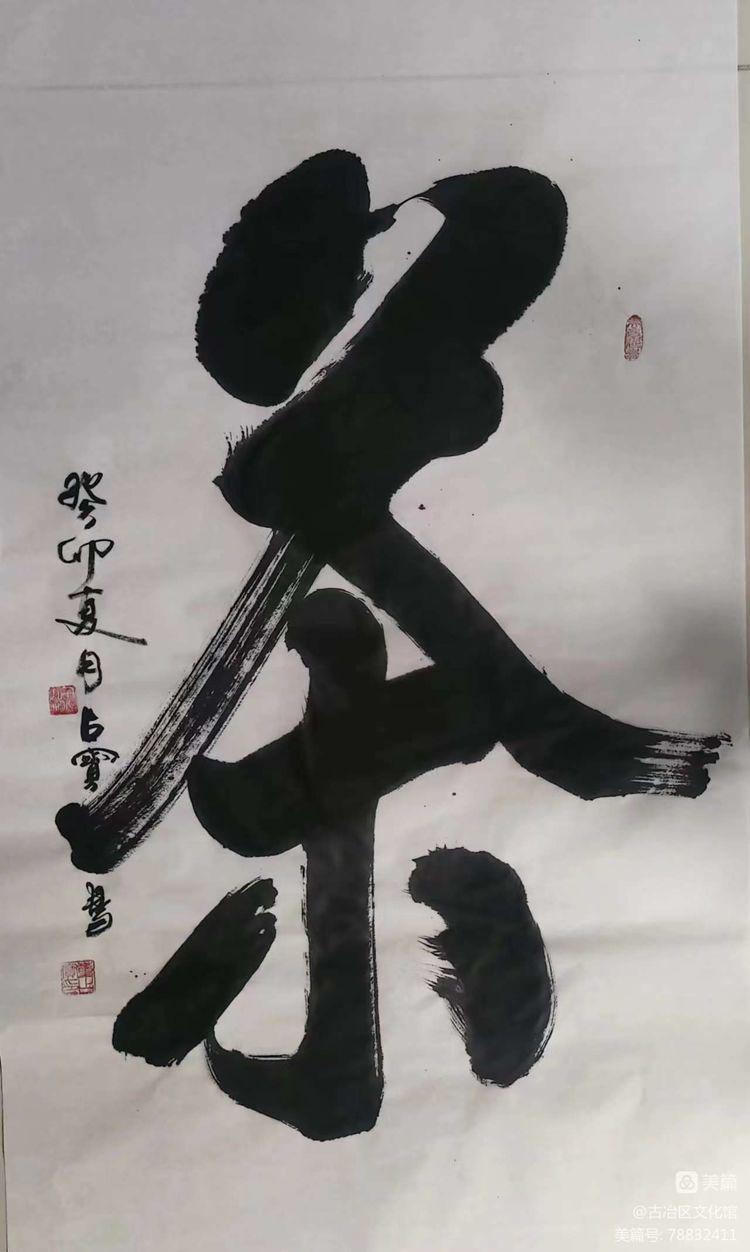 茶
癸卯夏月占寶書
美篇
@古冶区文化馆
美篇号: 78832411